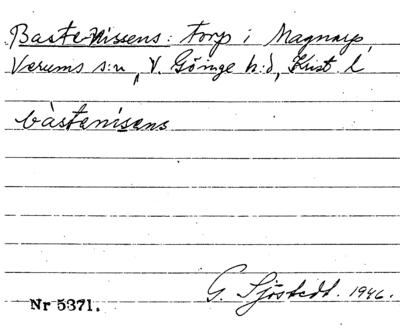 Baste Nissens: torp i Magnarp,
Verums s:n, V. Göinge h:d, Krist. l
bàstenisens
G. Sjöstedt. 1946.
Nr 5371.